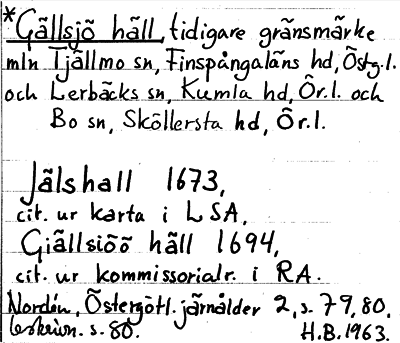 *Gällsjö häll, tidigare gränsmärke
mln Tjällmo sn, Finspångaläns hd, Östg.l.
och Lerbäcks sn, Kumla hd, Ör.l. och
Bo sn, Sköllersta hd, Ör.l.
Jälshall 1673,
cit. ur karta i LSA,
Giällsiöö häll 1694,
cit. ur kommissorialr. i RA.
Nordén, Östergötl. järnålder 2, s. 79, 80,
beskrivn. s. 80. H.B. 1963.